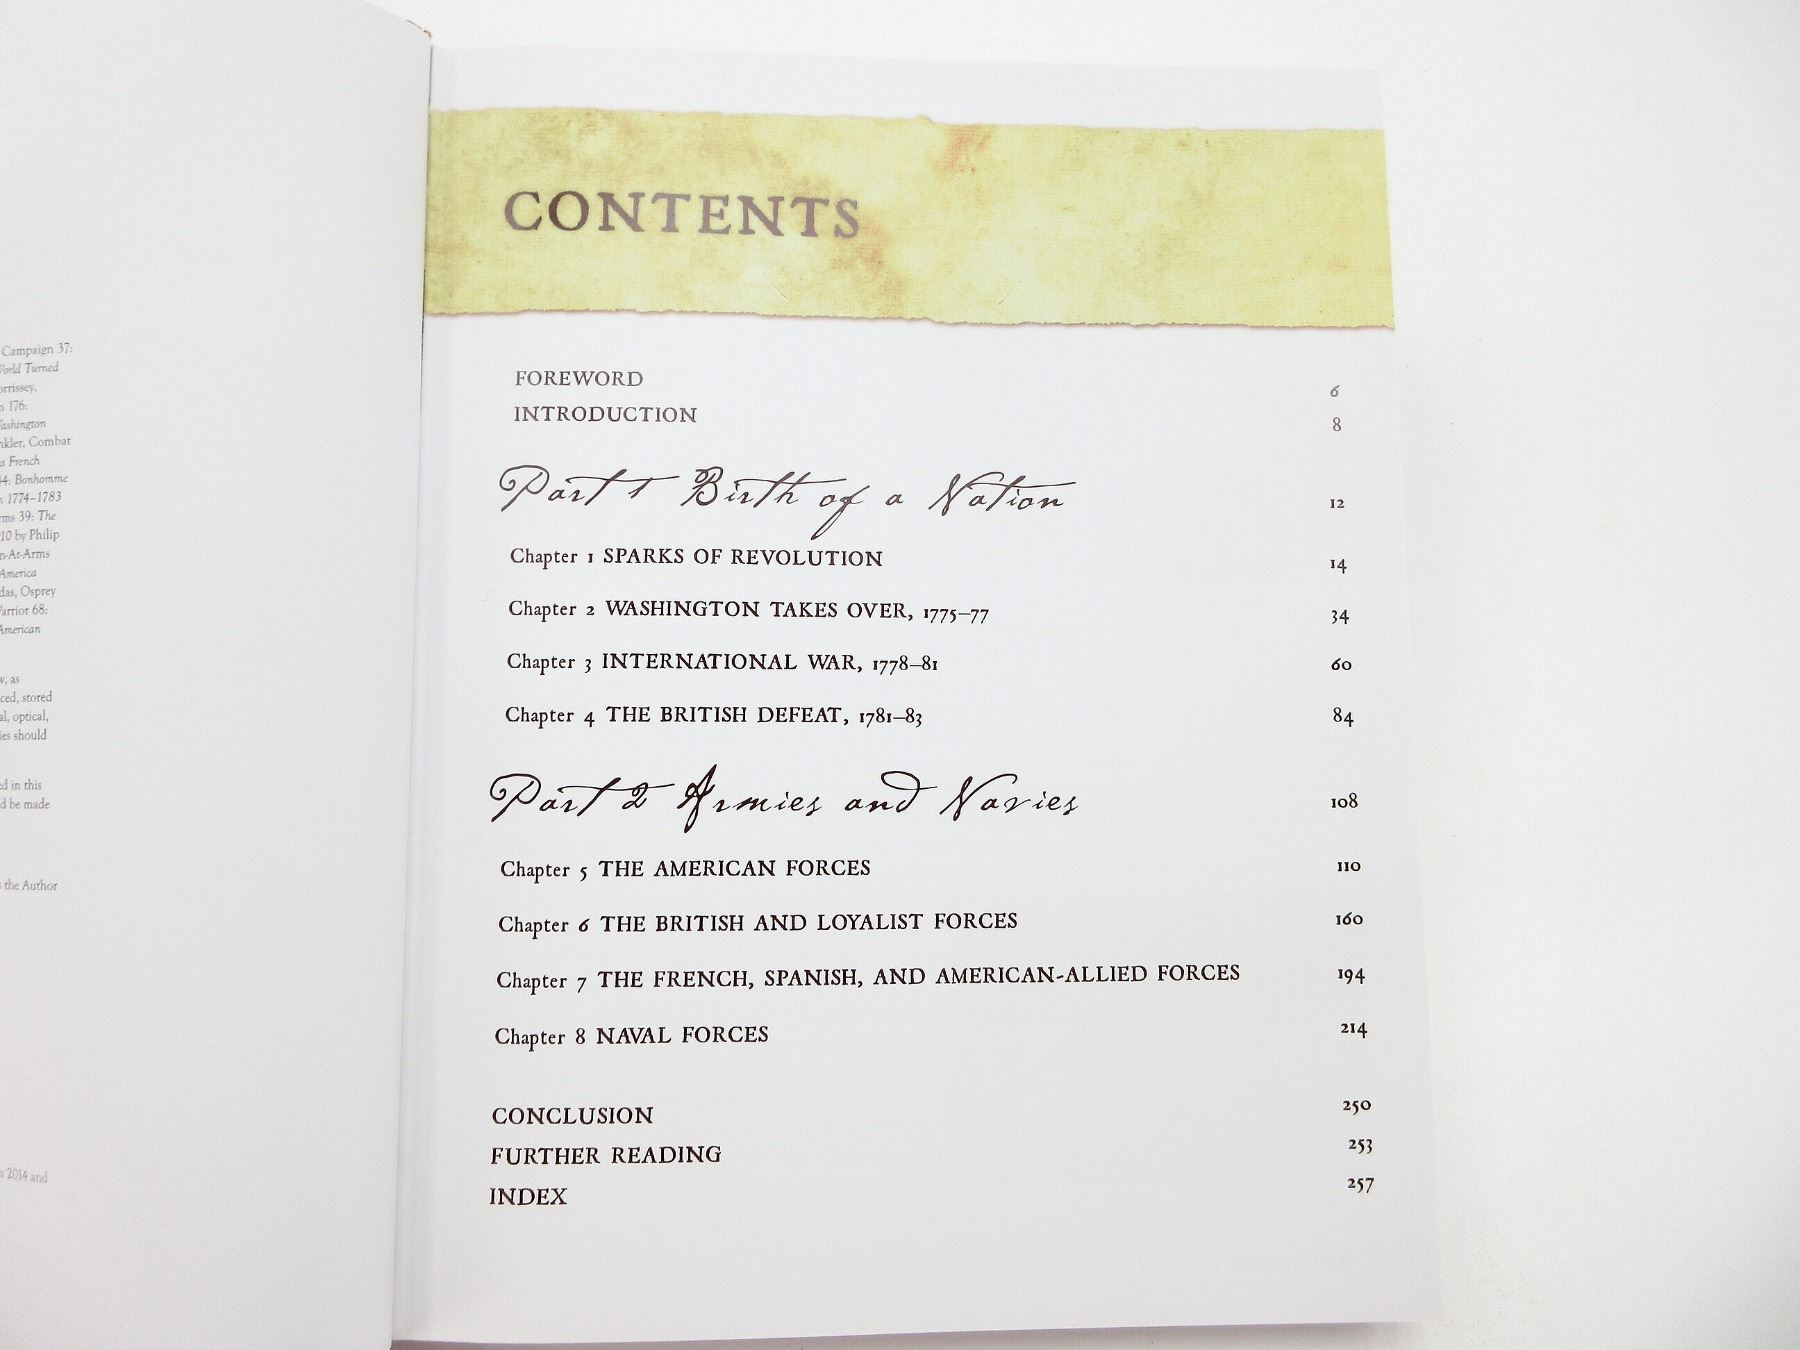 Campaign 37:
World Turned
orrissey,
n 176:
Washington
nkler, Combat
s French
44: Bonhomme
n 1774–1783
rms 39: The
10 by Philip
n-At-Arms
America
das, Osprey
Warrior 68:
American
w, as
ced, stored
al, optical,
ies should
ed in this
d be made
s the Author
n 2014 and
CONTENTS
FOREWORD 6
INTRODUCTION 8
Part 1 Birth of a Nation 12
Chapter 1 SPARKS OF REVOLUTION 14
Chapter 2 WASHINGTON TAKES OVER, 1775–77 34
Chapter 3 INTERNATIONAL WAR, 1778–81 60
Chapter 4 THE BRITISH DEFEAT, 1781–83 84
Part 2 Armies and Navies 108
Chapter 5 THE AMERICAN FORCES 110
Chapter 6 THE BRITISH AND LOYALIST FORCES 160
Chapter 7 THE FRENCH, SPANISH, AND AMERICAN-ALLIED FORCES 194
Chapter 8 NAVAL FORCES 214
CONCLUSION 250
FURTHER READING 253
INDEX 257